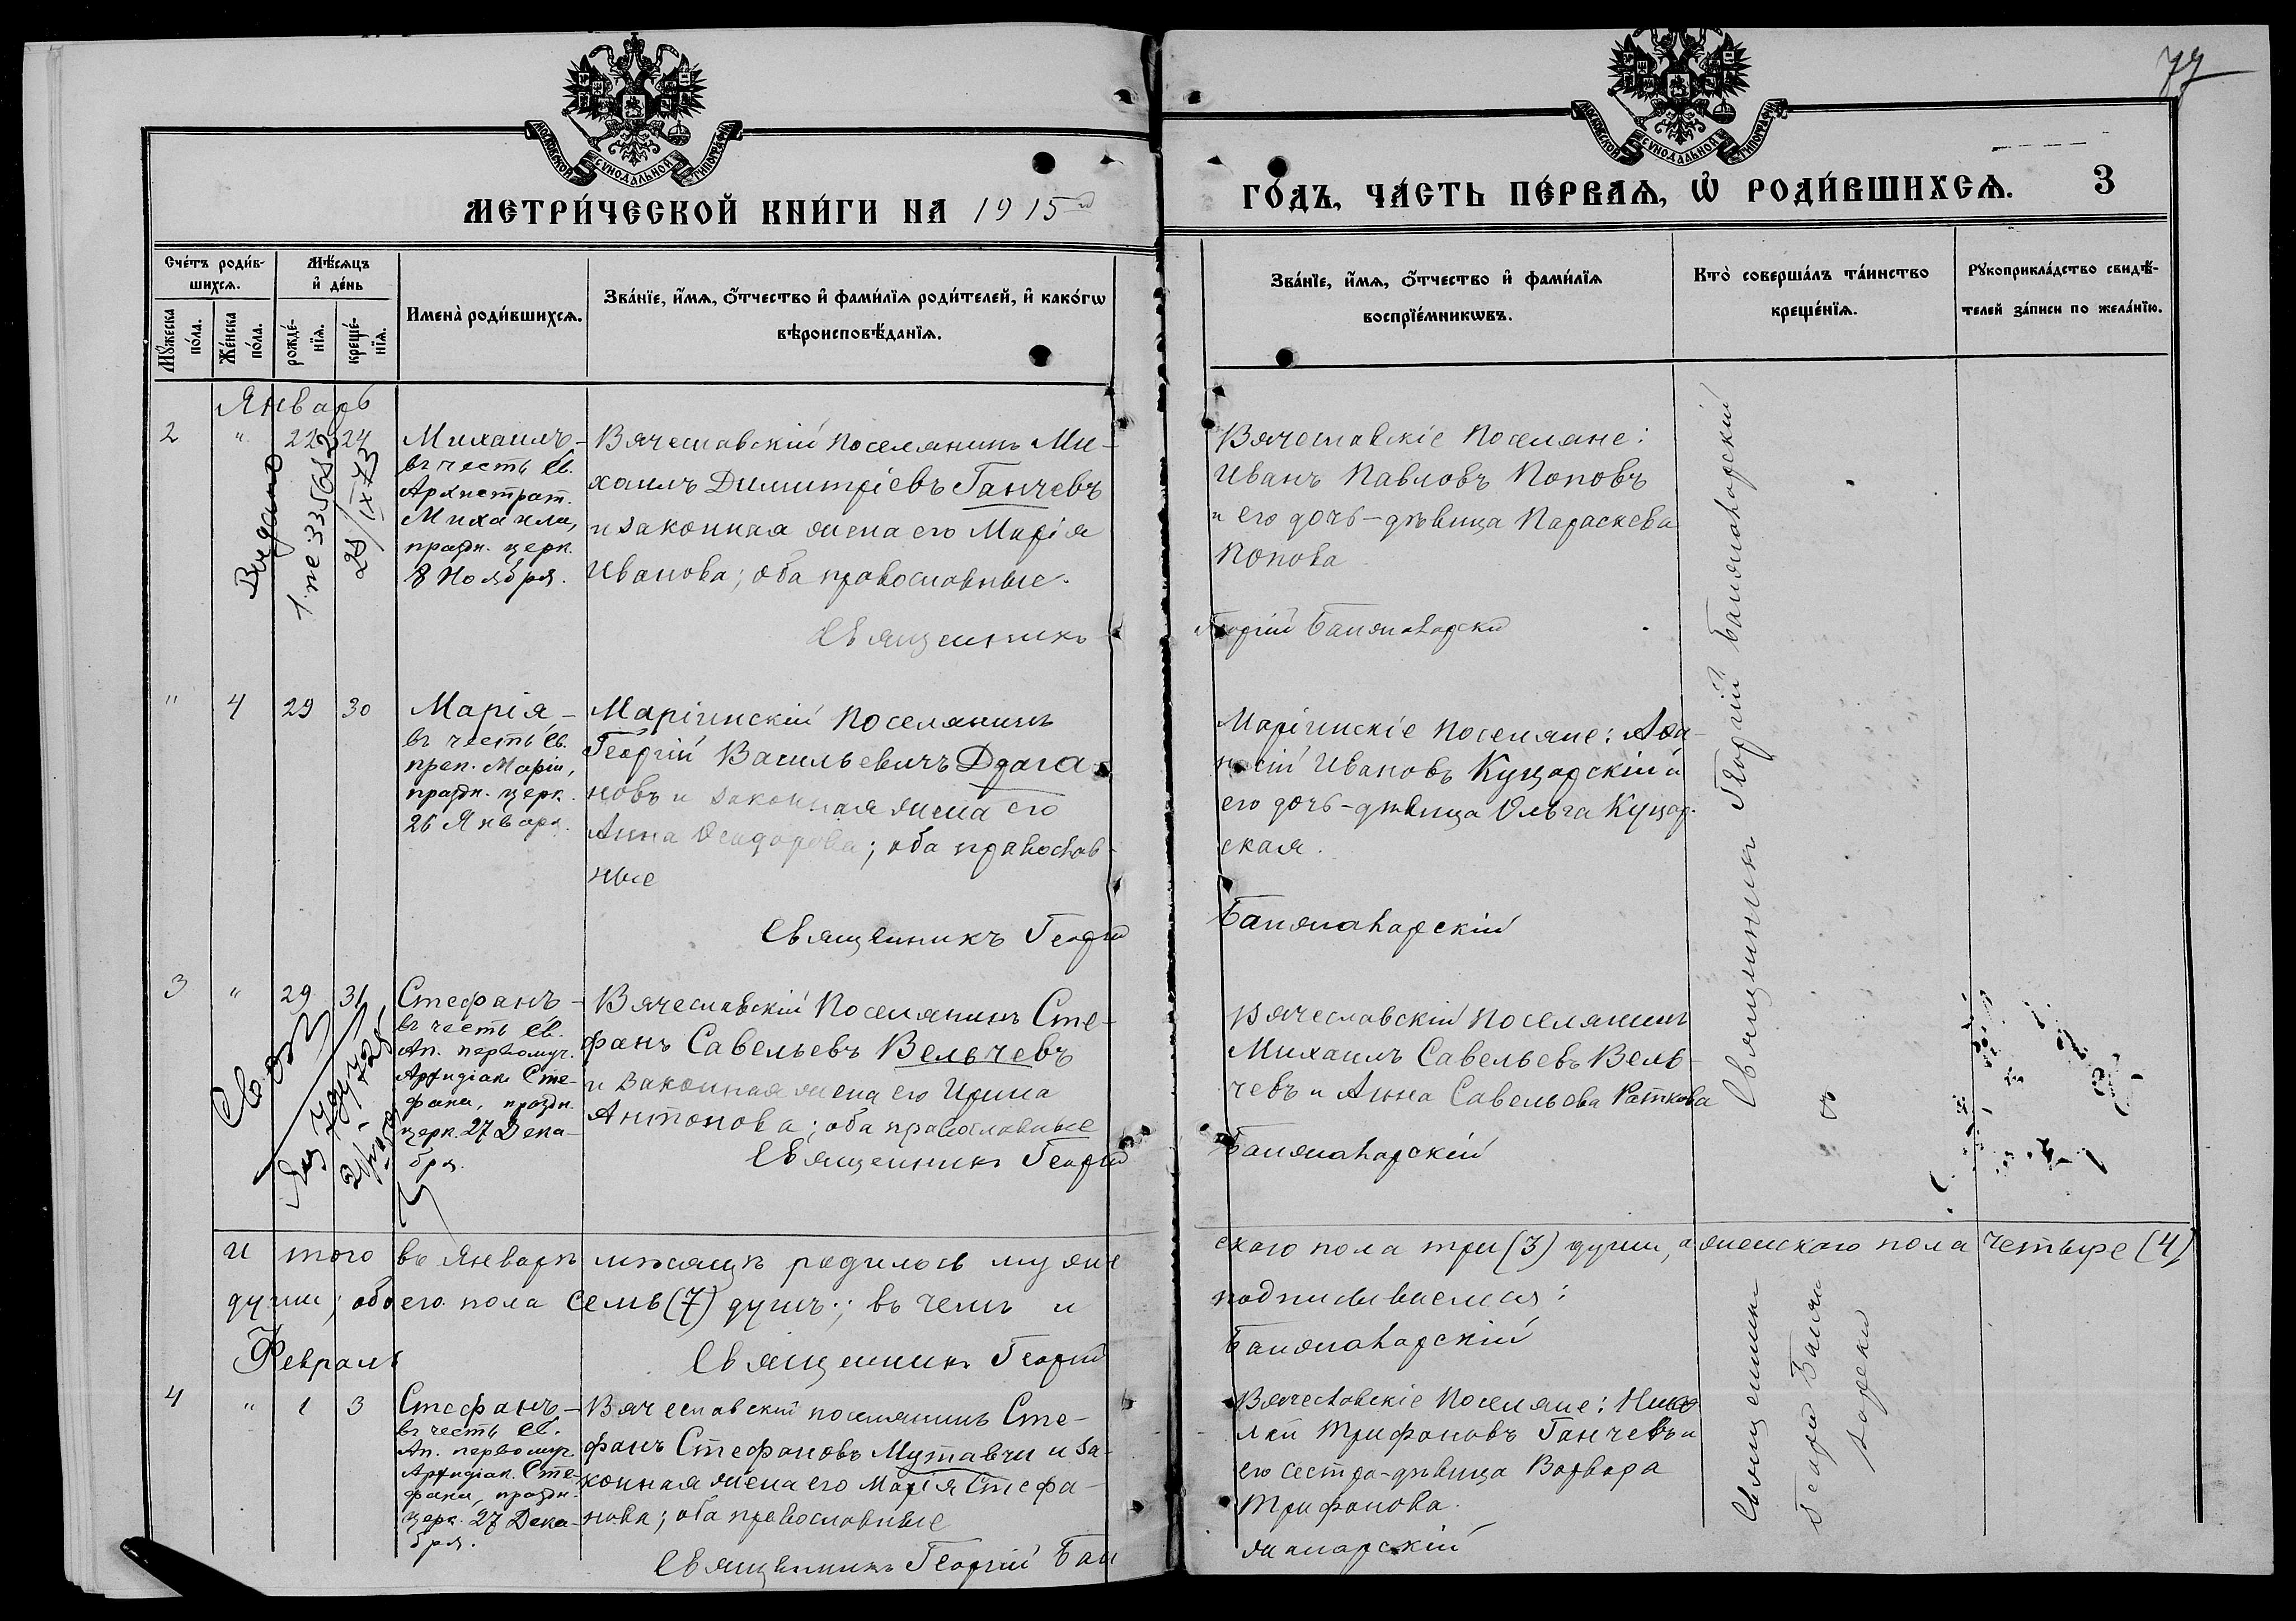 77
МОСКОВСКОЙ СѴНОДАЛЬНОЙ ТИПОГРАФІИ
МОСКОВСКОЙ СѴНОДАЛЬНОЙ ТИПОГРАФІИ
МЕТРИ́ЧЕСКОЙ КНИ́ГИ НА 1915
ГО́ДЪ, ЧА́СТЬ ПЕ́РВАѦ, Ѡ҆ РОДИ́ВШИХСѦ.
3
Сче́тъ роди́в-
шихсѧ.
Мꙋ́жеска по́ла.
Же́нска по́ла.
Мѣ́сѧцъ
и҆ де́нь
рожде́-
нїѧ.
креще́-
нїѧ.
Имена̀ роди́вшихсѧ.
Зва́нїе, и҆́мѧ, ѻ҆́тчество и҆ фами́лїѧ роди́телей, и҆ како́гѡ
вѣроисповѣ́данїѧ.
Зва́нїе, и҆́мѧ, ѻ҆́тчество и҆ фами́лїѧ
воспрїе́мникѡвъ.
Кто̀ соверша́лъ та́инство
креще́нїѧ.
Рꙋкоприкла́дство свидѣ́-
телей за́писи по жела́нїю.
Январь
2 " 22 24
Михаилъ-
въ честь Св.
Архистрат.
Михаила,
праздн. церк.
8 Ноября.
Вячеславскій поселянинъ Ми-
хаилъ Димитріевъ Ганчевъ
и законная жена его Марія
Иванова; оба православные.
Священникъ
Вячеславскіе поселяне:
Иванъ Павловъ Поповъ
и его дочь-дѣвица Параскева
Попова
Георгій Банжаларскій
Выдано
25/IX 73
" 4 29 30
Марія-
въ честь Св.
преп. Маріи,
праздн. церк.
26 Января.
Маріинскій поселянинъ
Георгій Васильевичъ Драга-
новъ и законная жена его
Анна Ѳеодорова; оба православ-
ные
Священникъ Георгій
Маріинскіе поселяне: Аѳа-
насій Ивановъ Куцарскій и
его дочь-дѣвица Ольга Куцар-
ская.
Банжаларскій
3 " 29 31
Стефанъ-
въ честь Св.
Ап. первомуч.
Архидіак. Сте-
фана, праздн.
церк. 27 Дека-
бря.
Вячеславскій поселянинъ Сте-
фанъ Савельевъ Вельчевъ
и законная жена его Ирина
Антонова; оба православные
Священникъ Георгій
Вячеславскій поселянинъ
Михаилъ Савельевъ Вель-
чевъ и Анна Савельева Раткова
Банжаларскій
Священникъ Георгій Банжаларскій
И того въ Январѣ мѣсяцѣ родилось муже
скаго пола три (3) души, а женскаго пола четыре (4)
души; обоего пола семь (7) душъ; въ чемъ и
подписываемся:
Священникъ Георгій
Банжаларскій
Февраль
4 " 1 3
Стефанъ-
въ честь Св.
Ап. первомуч.
Архидіак. Сте-
фана, праздн.
церк. 27 Дека-
бря.
Вячеславскій поселянинъ Сте-
фанъ Стефановъ Мутавчи и за-
конная жена его Марія Стефа-
нова; оба православные
Священникъ Георгій Бан
Вячеславскіе поселяне: Нико-
лай Трифоновъ Ганчевъ и
его сестра-дѣвица Варвара
Трифонова.
жаларскій
Священникъ
Георгій Банжа
ларскій